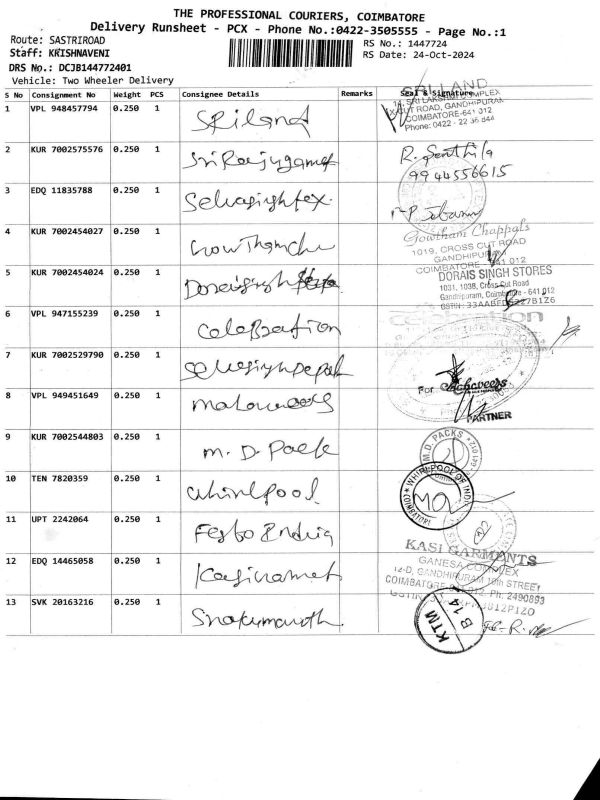 THE PROFESSIONAL COURIERS, COIMBATORE
Delivery Runsheet - PCX - Phone No.:0422-3505555 - Page No.:1
Route: SASTRIROAD
RS No.: 1447724
Staff: KRISHNAVENI
RS Date: 24-Oct-2024
DRS No.: DCJB144772401
Vehicle: Two Wheeler Delivery
S No Consignment No Weight PCS Consignee Details Remarks Seal & Signature
1 VPL 948457794 0.250 1 SRiland
SRI LAND
SRI LAKSHMI COMPLEX
CUT ROAD, GANDHIPURAM
COIMBATORE-641 012
Phone: 0422 - 22
2 KUR 7002575576 0.250 1
R. Senthila
9944556615
3 EDQ 11835788 0.250 1
4 KUR 7002454027 0.250 1
Gowtham Chappals
1019, CROSS CUT ROAD
GANDHIPUR
COIMBATORE 641 012
5 KUR 7002454024 0.250 1 Doraisingh
DORAIS SINGH STORES
1031, 1038, Cross Cut Road
Gandhipuram, Coimbatore - 641 012
6 VPL 947155239 0.250 1 Celebration
celebration
7 KUR 7002529790 0.250 1
For
8 VPL 949451649 0.250 1
PARTNER
9 KUR 7002544803 0.250 1 M. D. Pack
M.D. PACKS
10 TEN 7820359 0.250 1 Whirlpool
WHIRLPOOL OF INDIA
COIMBATORE
11 UPT 2242064 0.250 1
KASI GARMENTS
12 EDQ 14465058 0.250 1
GANESA COMPLEX
12-D, GANDHIPURAM 10th STREET
COIMBATORE 012. Ph: 2490893
13 SVK 20163216 0.250 1
KTM
B 14